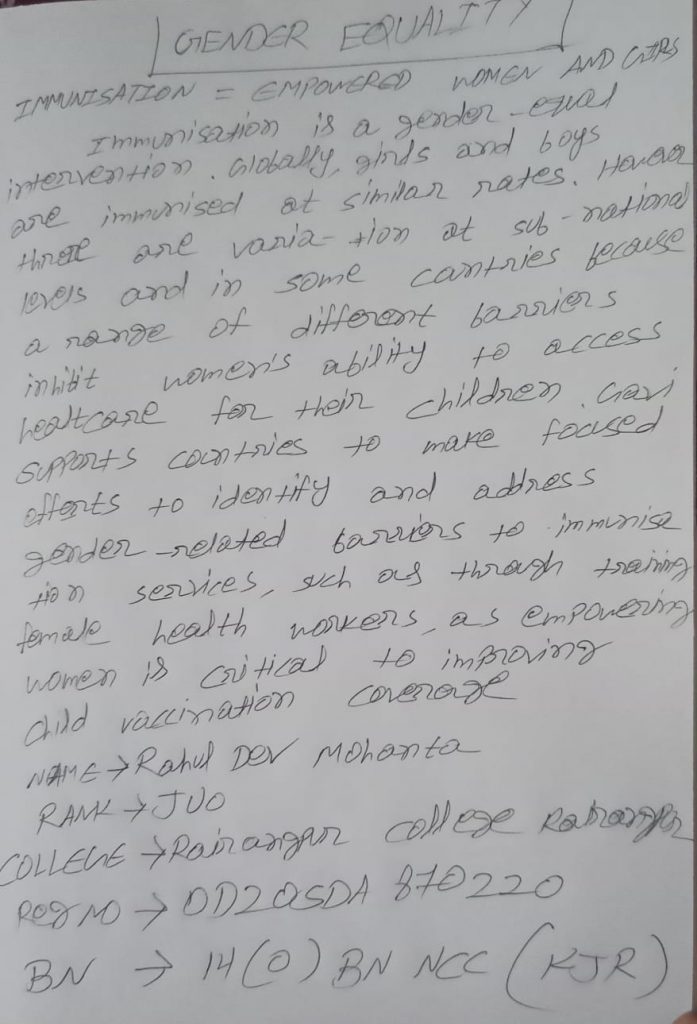 GENDER EQUALITY
IMMUNISATION = EMPOWERED WOMEN AND GIRLS
Immunisation is a gender-equal
intervention. Globally, girls and boys
are immunised at similar rates. However
there are varia-tion at sub-national
levels and in some cantries because
a range of different barriers
inhibit women's ability to access
healtcare for their children. Gavi
supports countries to make focused
efforts to identify and address
gender-related barriers to immunisa
tion services, such as through training
female health workers, as empowering
women is critical to improving
child vaccination coverage
NAME → Rahul Dev Mohanta
RANK → JUO
COLLEGE → Rairangpur college Rairangpur
Reg NO → OD20SDA 870220
BN → 14(O) BN NCC (KJR)